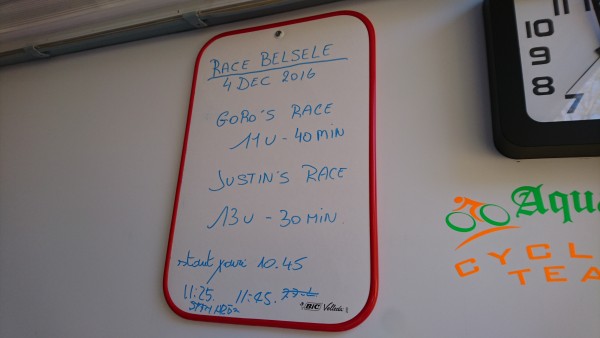 RACE BELSELE
4 DEC 2016
GORO'S RACE
11U - 40 MIN
JUSTIN'S RACE
13U - 30 MIN.
10.45
11:25. 11:45.
BIC Velleda
10
9
8
7
Aqu
CYCL
TEA